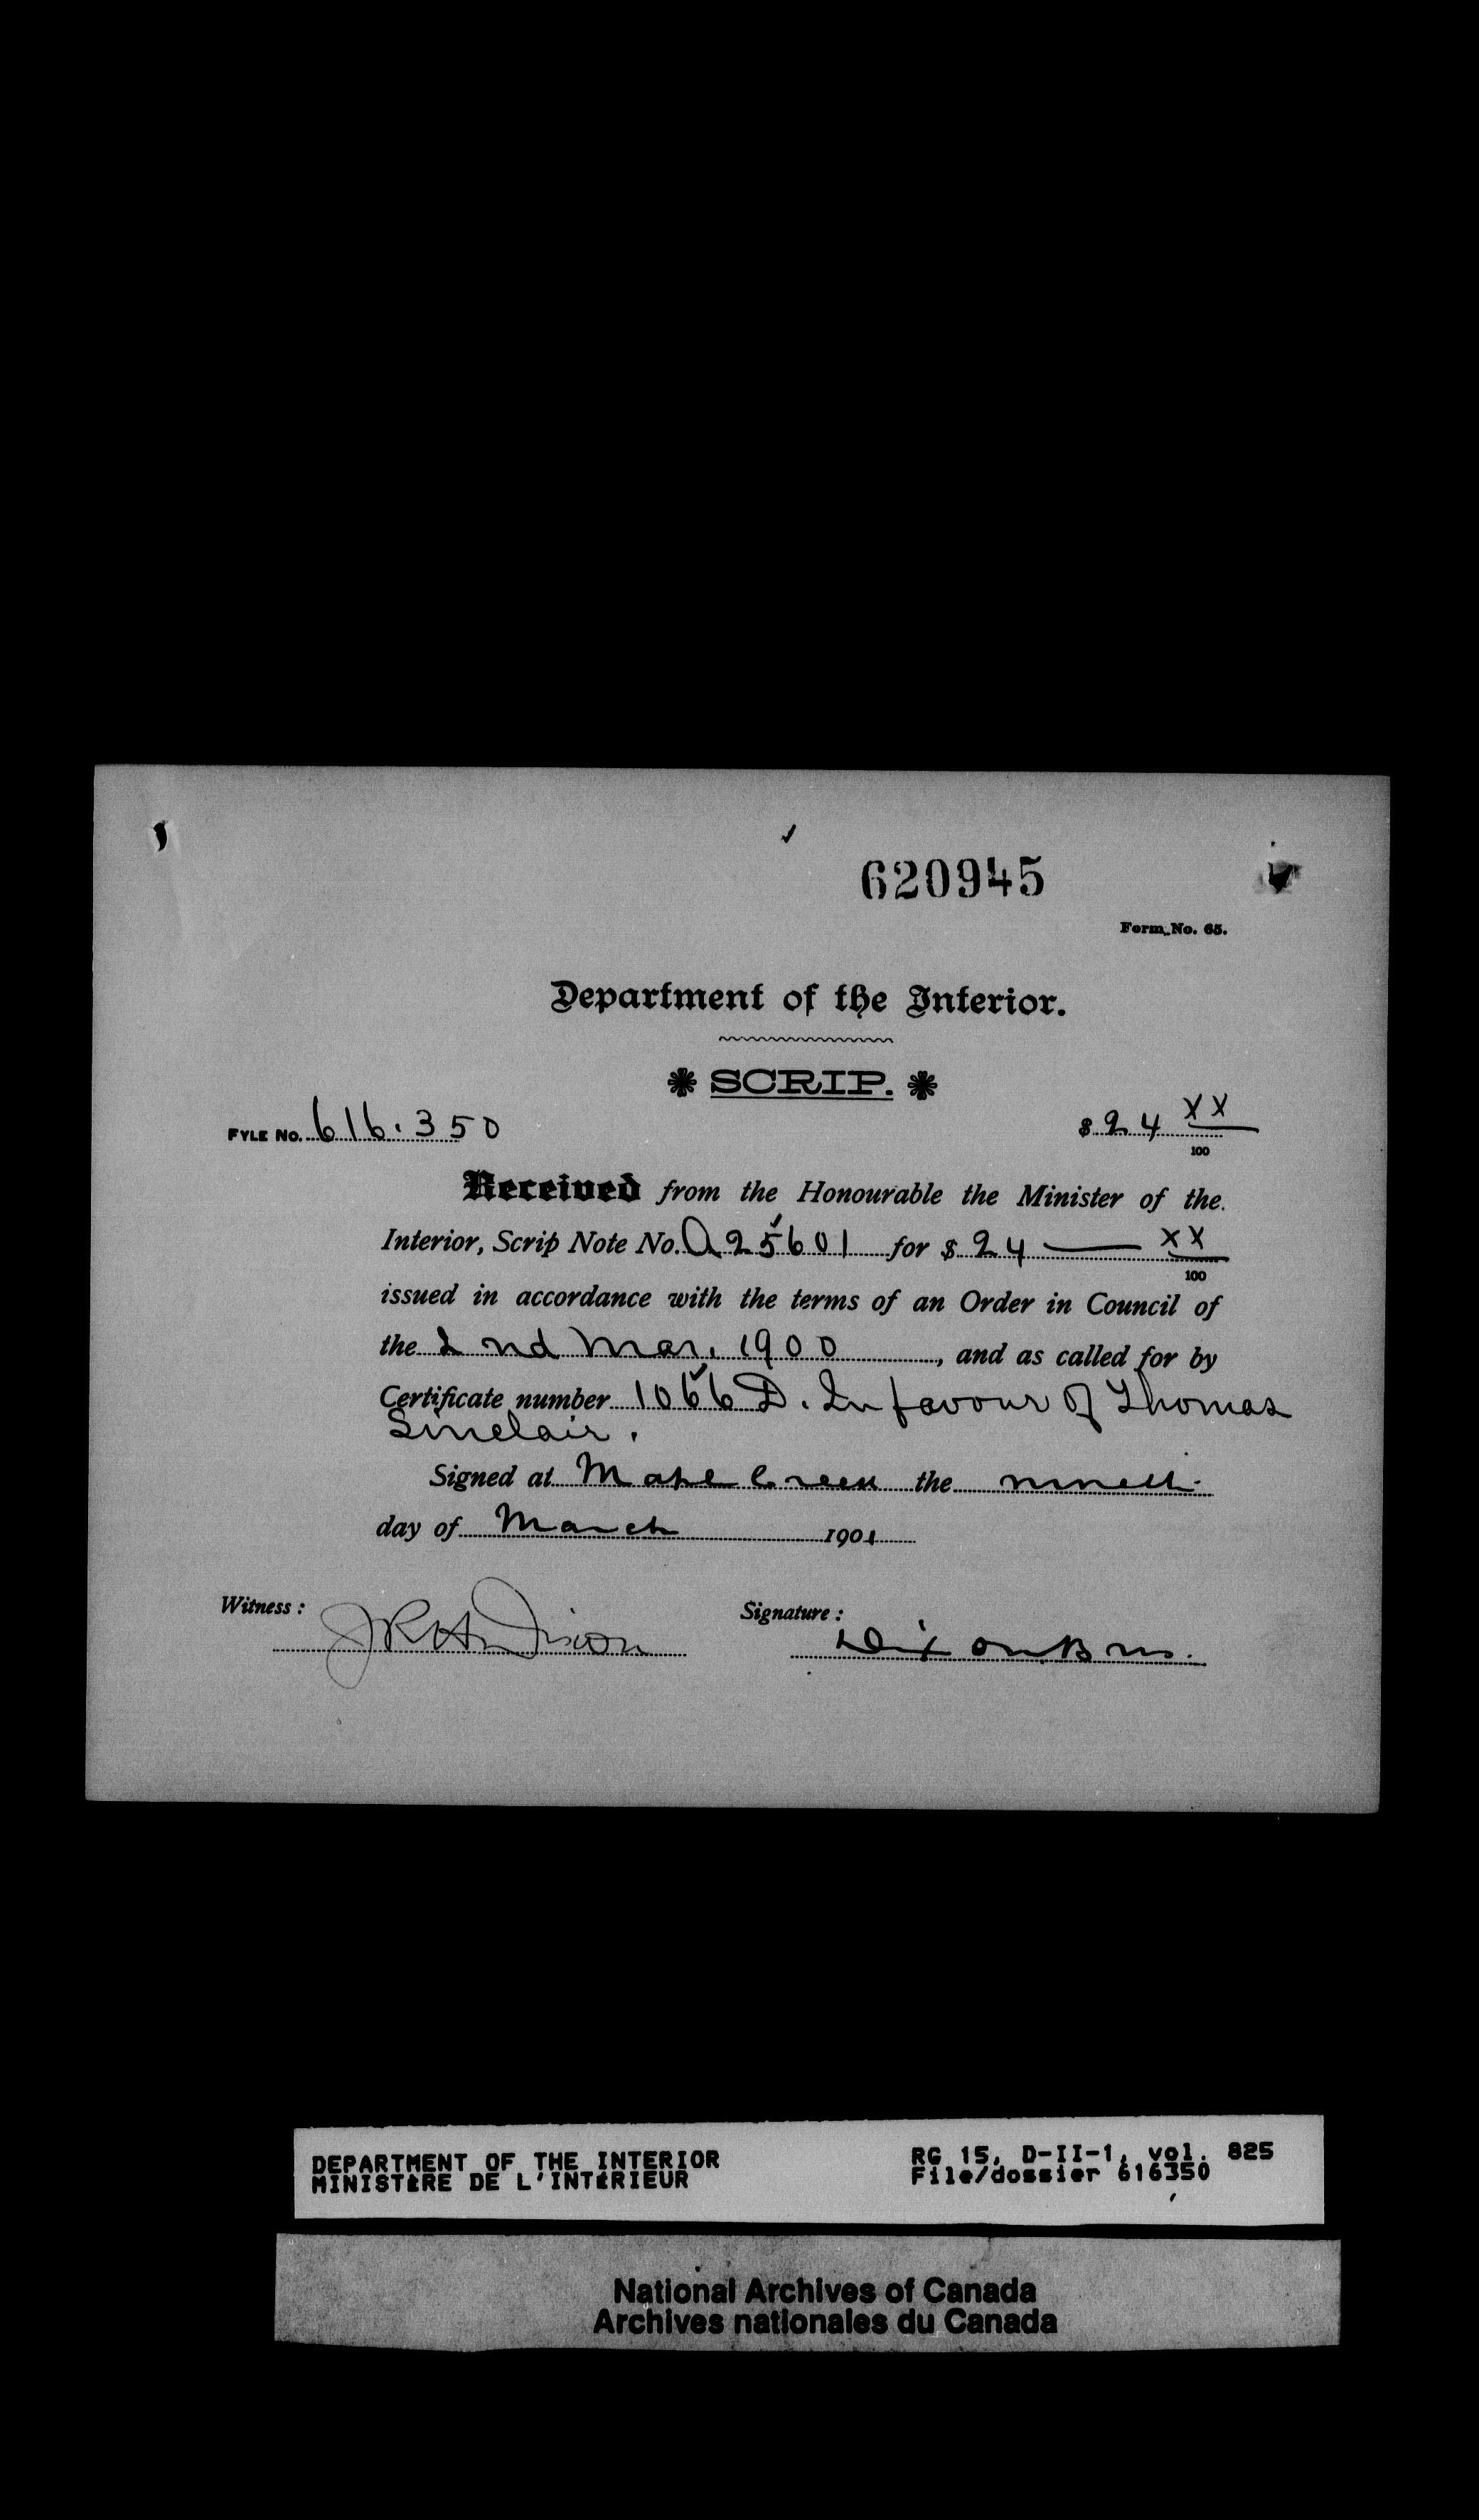 620945
Form No. 65.
Department of the Interior.
SCRIP.
FYLE No. 616.350
$ 24 XX/100
Received from the Honourable the Minister of the
Interior, Scrip Note No. A 25601 for $ 24 — XX/100
issued in accordance with the terms of an Order in Council of
the 2nd Mar. 1900, and as called for by
Certificate number 1066 D. In favour of Thomas
Sinclair.
Signed at Maple Creek the ninth
day of March 1901
Witness:
Signature:
Dixon Bros.
DEPARTMENT OF THE INTERIOR
MINISTÈRE DE L'INTÉRIEUR
RG 15, D-II-1, vol. 825
File/dossier 616350
National Archives of Canada
Archives nationales du Canada